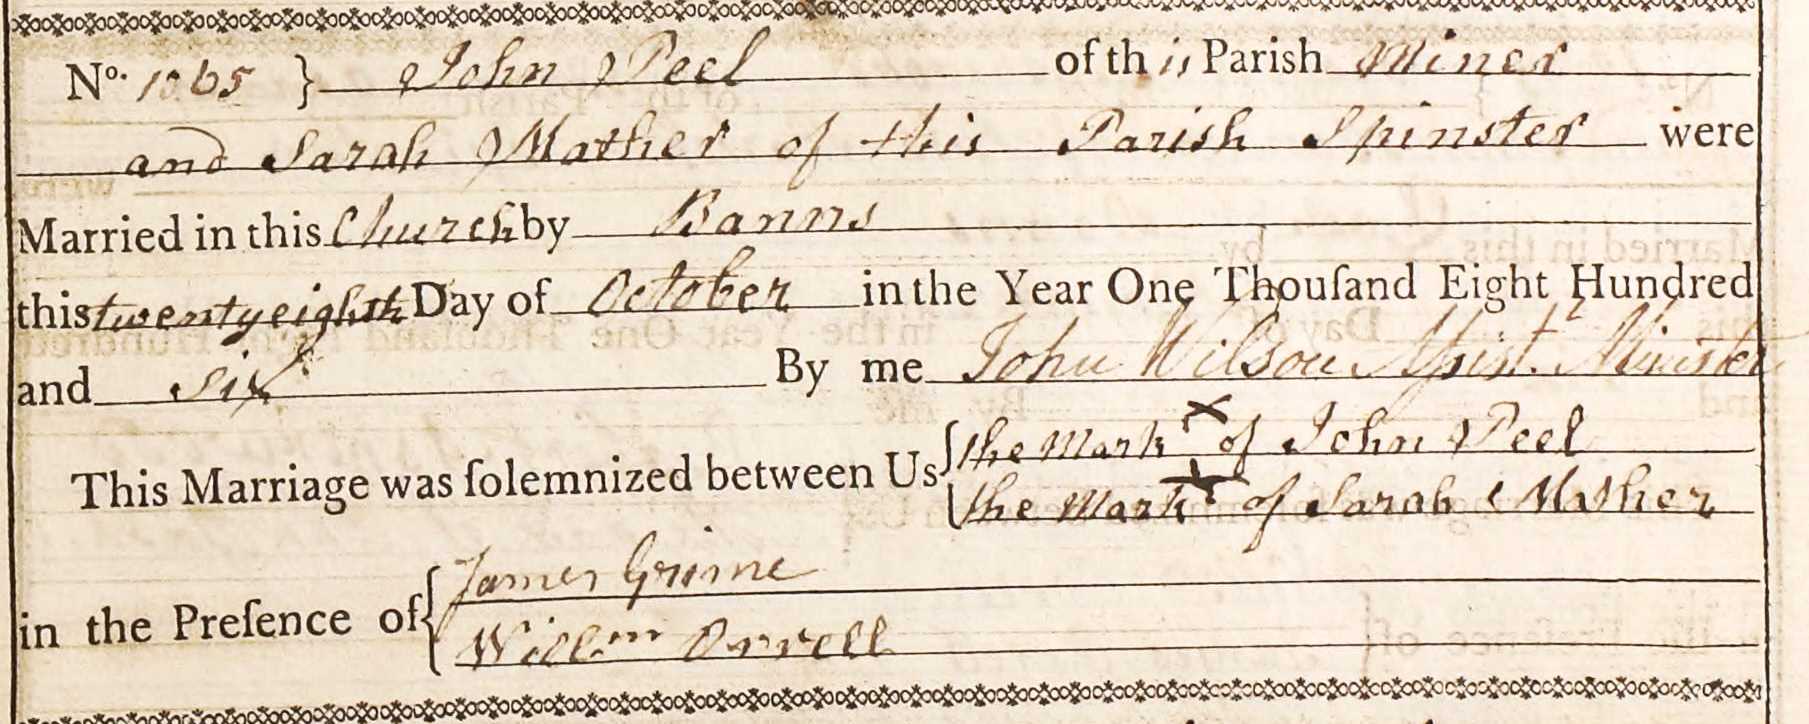 Nº. 1065 } John Peel of this Parish Miner
and Sarah Mather of this Parish Spinster were
Married in this Church by Banns
this twentyeighth Day of October in the Year One Thouſand Eight Hundred
and six By me John Wilson Minister
This Marriage was ſolemnized between Us { the Mark X of John Peel
the Mark X of Sarah Mather
in the Preſence of { James Grime
Willm Orrell